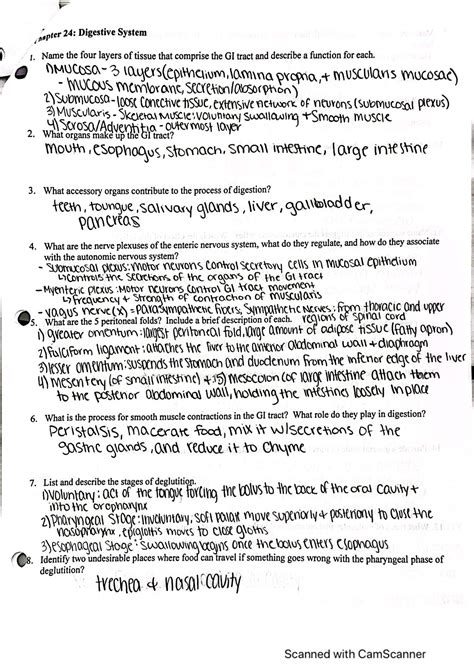 apter 24: Digestive System
1. Name the four layers of tissue that comprise the GI tract and describe a function for each.
1) Mucosa - 3 layers (epithelium, lamina propria, + muscularis mucosae)
- mucous membrane, secretion/absorption)
2) Submucosa - loose conective tissue, extensive network of neurons (submucosal plexus)
3) Muscularis - Skeletal muscle: voluntary swallowing + smooth muscle
4) Serosa/Adventitia - outermost layer
2. What organs make up the GI tract?
mouth, esophagus, stomach, small intestine, large intestine
3. What accessory organs contribute to the process of digestion?
teeth, toungue, salivary glands, liver, gallbladder,
pancreas
4. What are the nerve plexuses of the enteric nervous system, what do they regulate, and how do they associate
with the autonomic nervous system?
- Submucosal plexus: motor neurons control secretory cells in mucosal epithelium
↳ controls the secretions of the organs of the GI tract
- Myenteric plexus: Motor neurons control GI tract movement
↳ frequency + strength of contraction of muscularis
- vagus nerve (x) = parasympathetic fibers, Sympathetic Nerves: from thoracic and upper
regions of spinal cord
5. What are the 5 peritoneal folds? Include a brief description of each.
1) greater omentum: largest peritoneal fold, large amount of adipose tissue (fatty apron)
2) falciform ligament: attaches the liver to the anterior abdominal wall + diaphragm
3) lesser omentum: suspends the stomach and duodenum from the inferior edge of the liver
4) Mesentery (of small intestine) + 5) mesocolon (of large intestine attach them
to the posterior abdominal wall, holding the intestines loosely in place
6. What is the process for smooth muscle contractions in the GI tract? What role do they play in digestion?
Peristalsis, macerate food, mix it w/ secretions of the
gastric glands, and reduce it to chyme
7. List and describe the stages of deglutition.
1) Voluntary: act of the tongue forcing the bolus to the back of the oral cavity +
into the oropharynx
2) Pharyngeal Stage: Involuntary, soft palate move superiorly + posteriorly to close the
nasopharynx, epiglottis moves to close glottis
3) esophageal stage: Swallowing begins once the bolus enters esophagus
8. Identify two undesirable places where food can travel if something goes wrong with the pharyngeal phase of
deglutition?
trechea + nasal cavity
Scanned with CamScanner